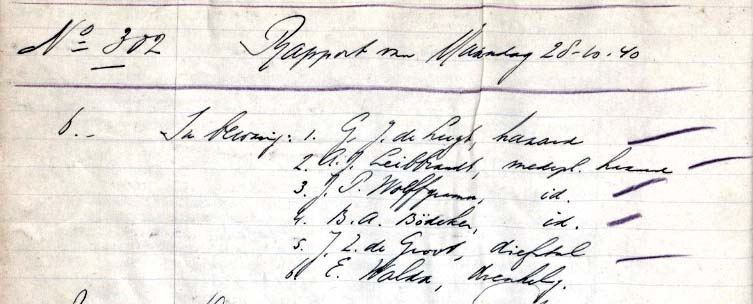 No 302 Rapport van Maandag 28-10-40
6.- In bewaring: 1. G. J. de Lugt, hazard
2. A. J. Leibbrandt, medepl.
3. J. P. Wolffgramm, id.
4. B. A. Bödeker, id.
5. J. Z. de Groot, diefstal
6. E. Walda,